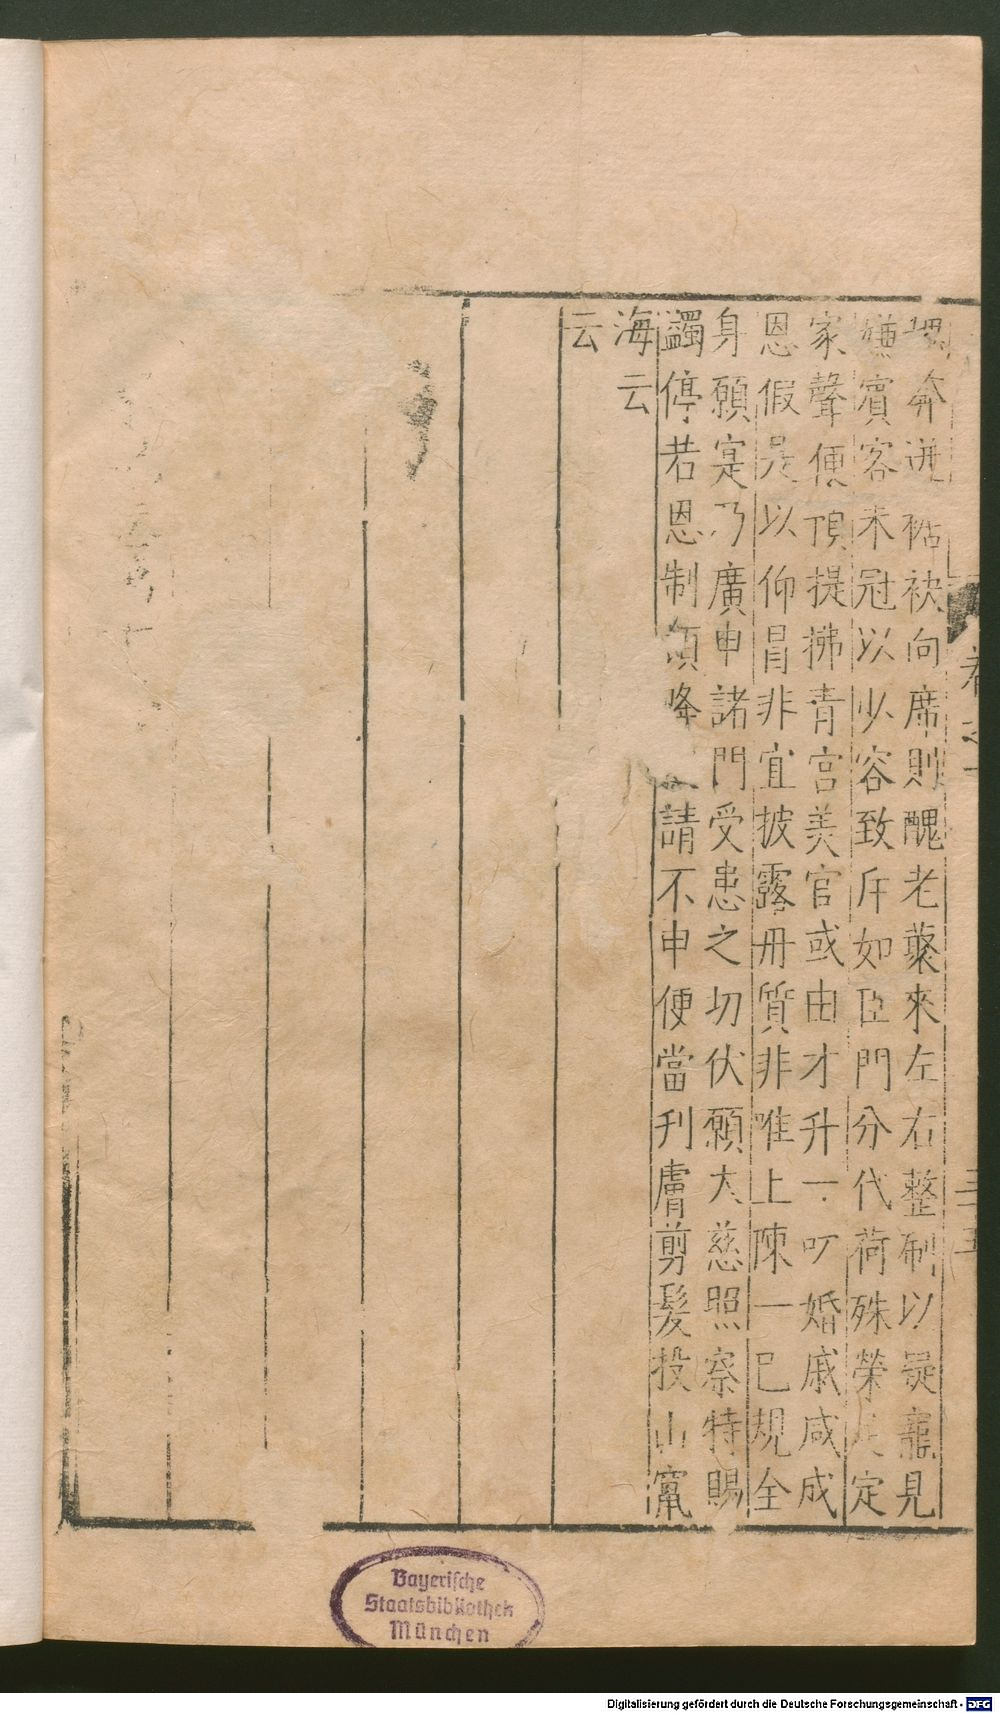 奔迸裾袂向席則醜老藂來左右整刷以疑寵見
嫌賓客未冠以少容致斥如臣門分代荷殊榮足定
家聲便預提拂青宮美官或由才升一叨婚戚咸成
恩假是以仰冒非宜披露丹質非唯上陳一己規全
身願寔乃廣申諸門受患之切伏願大慈照察特賜
蠲停若恩制頒降請不申便當刋膚剪髮投山竄
海云
云
卷之十
三五
Bayerische
Staatsbibliothek
München
Digitalisierung gefördert durch die Deutsche Forschungsgemeinschaft - DFG